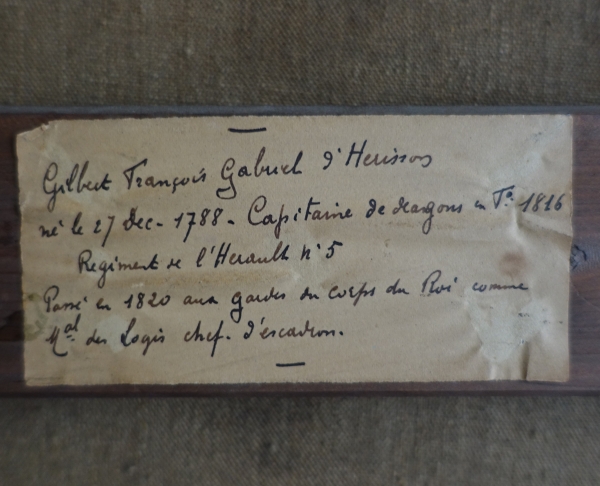 Gilbert François Gabriel d'Herissos
né le 27 Dec. 1788. Capitaine de dragons en 1816
Regiment de l'Herault n° 5
Passé en 1820 aux gardes du corps du Roi comme
Mal des Logis chef. d'escadron.